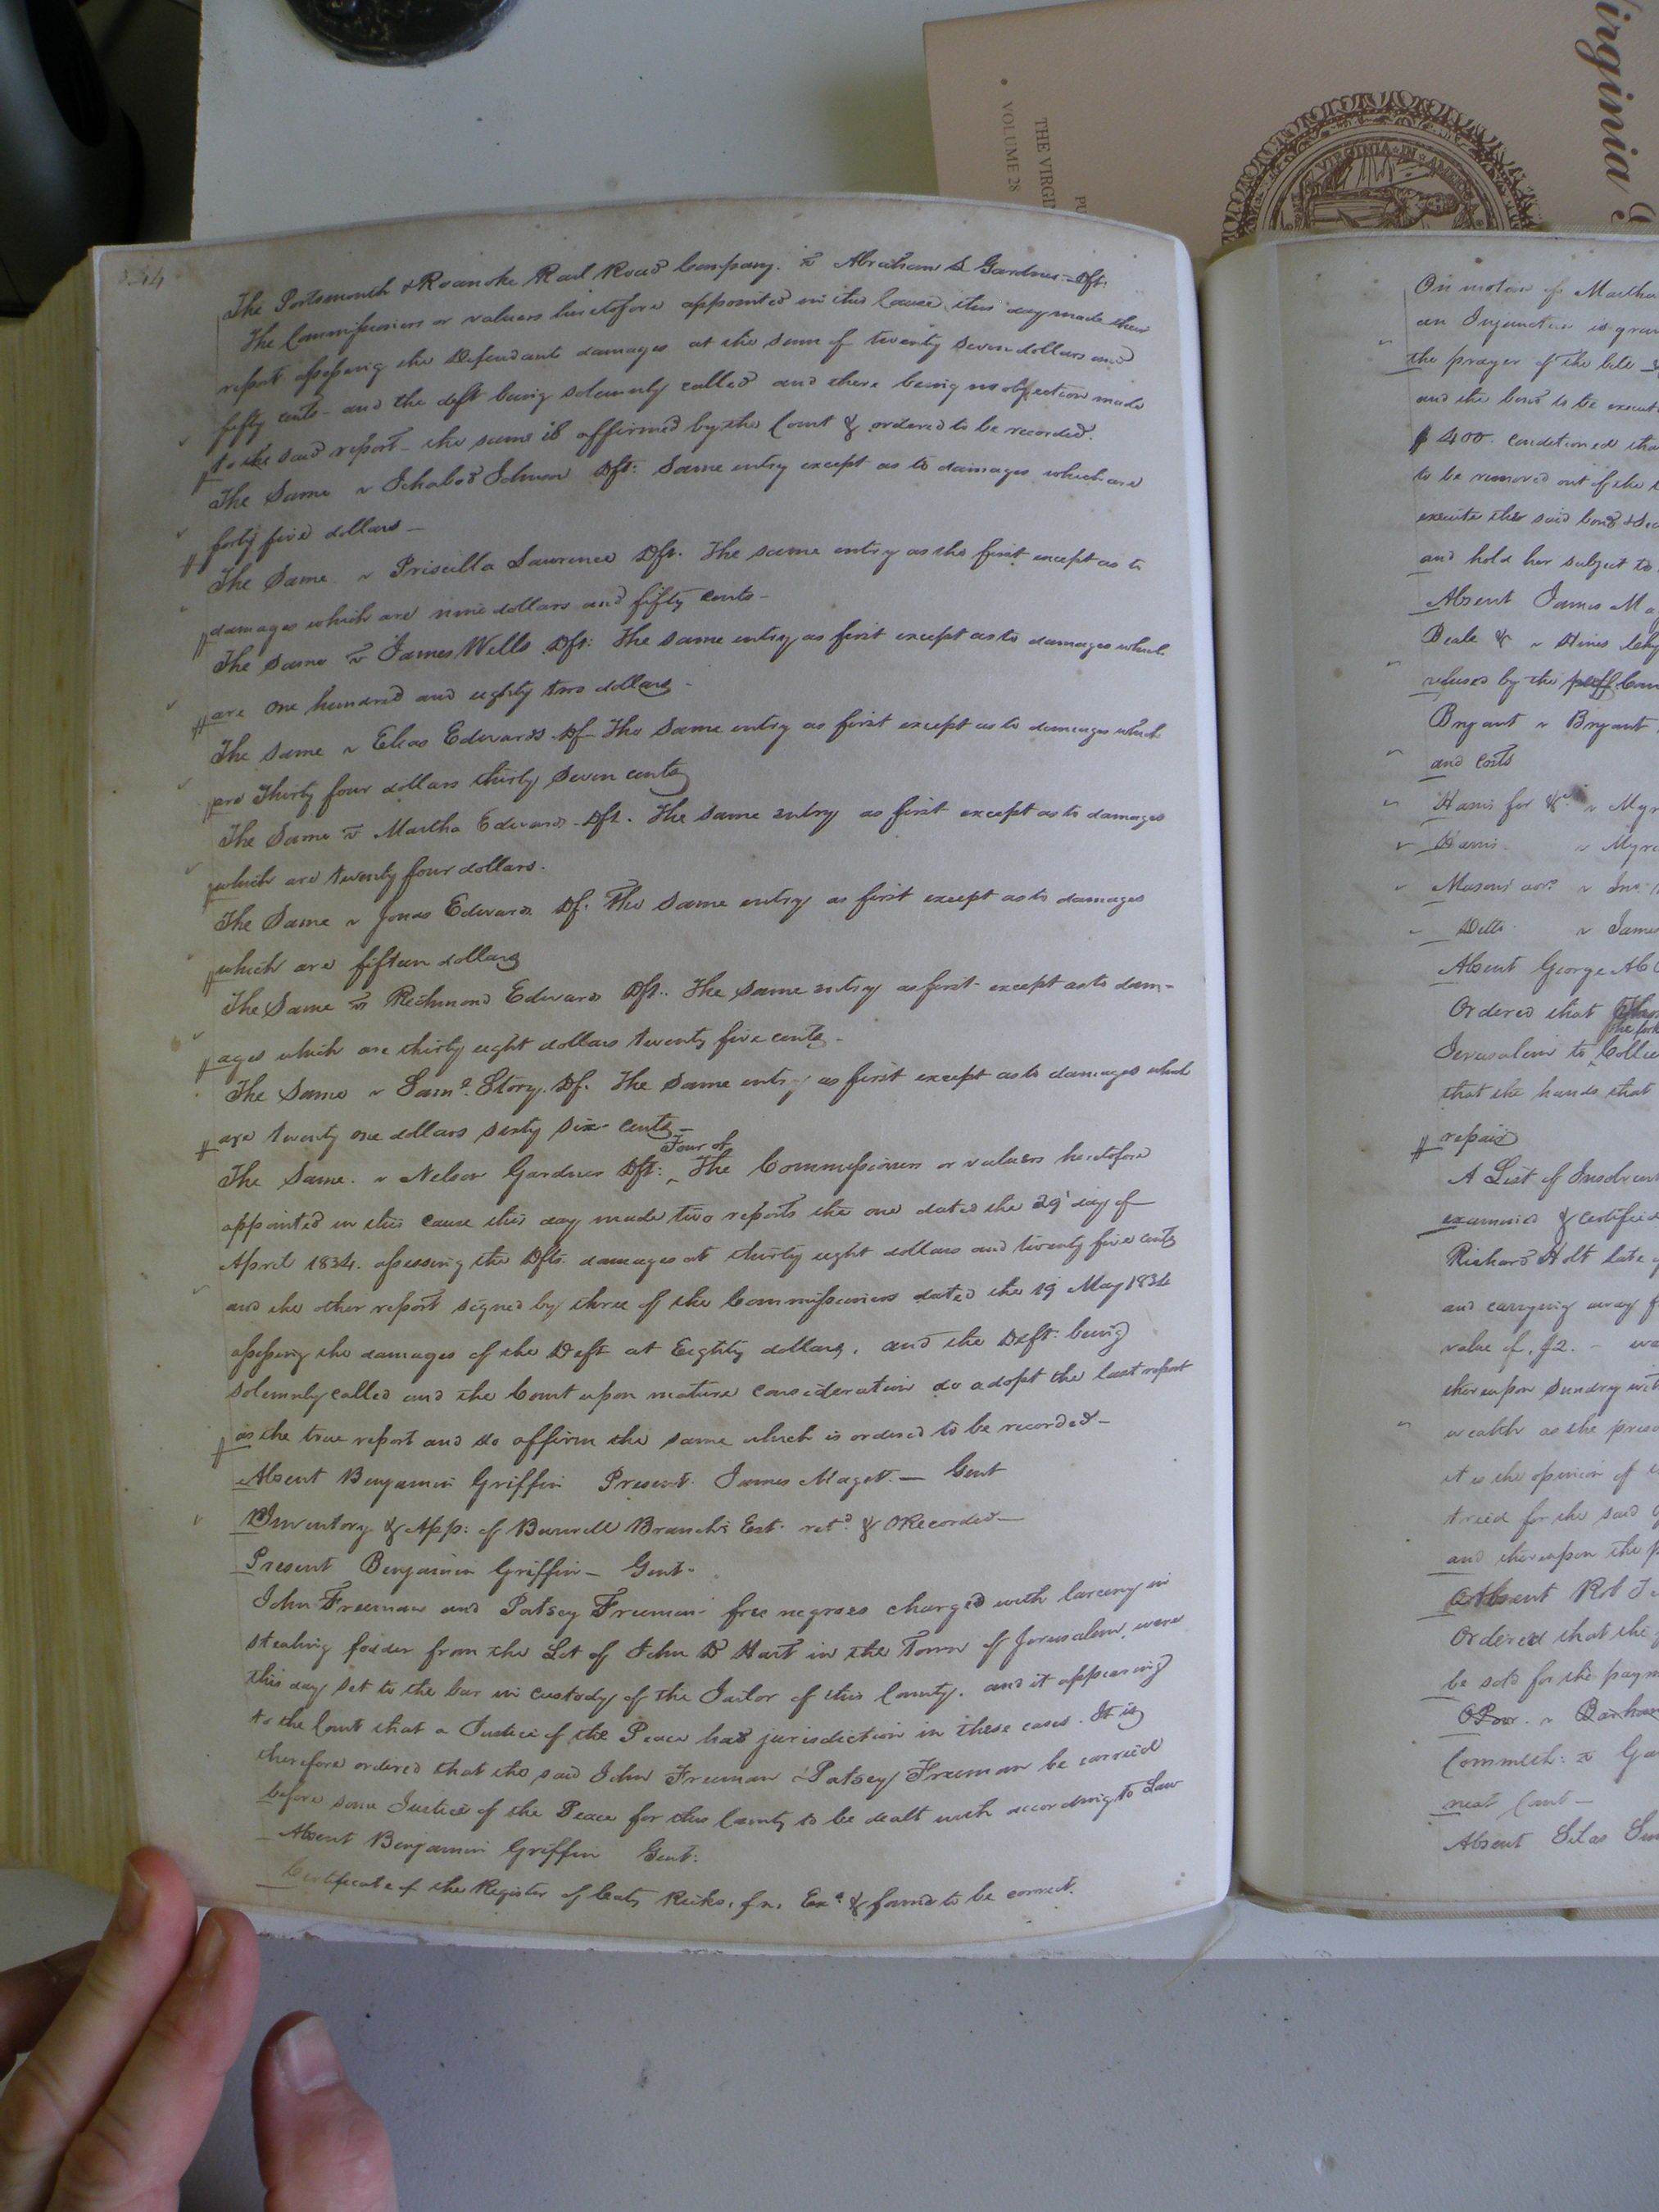 Virginia
THE VIRGI
VOLUME 28
PU
VIRGINIA IN AMER
The Portsmouth & Roanoke Rail Road Company. v Abraham S Gardner - Dft.
The Commissioners or valuers heretofore appointed in this Cause, this day made their
report assessing the Defendants damages at the sum of twenty seven dollars and
fifty cents - and the deft being solemnly called and there being no objection made
to the said report - the same is affirmed by the Court & ordered to be recorded.
The Same v Ichabod Johnson Dft: Same entry except as to damages which are
forty five dollars —
The Same v Priscilla Lawrence Dft. The same entry as the first except as to
damages which are nine dollars and fifty cents -
The same v James Wells Dft: The same entry as first except as to damages which
are one hundred and eighty two dollars -
The same v Elias Edwards Df - The same entry as first except as to damages which
are Thirty four dollars thirty seven cents
The Same v Martha Edwards - Dft. The same entry as first except as to damages
which are twenty four dollars.
The Same v Jonas Edwards Df. The same entry as first except as to damages
which are fifteen dollars
The Same v Richmond Edwards Dft.. The same entry as first - except as to dam-
ages which are thirty eight dollars twenty five cents -
The Same v Saml. Story. Df. The same entry as first except as to damages which
are twenty one dollars sixty six cents -
Four of
The Same. v Nelson Gardner Dft: ‸ The Commissioners or valuers heretofore
appointed in this cause this day made two reports the one dated the 29 day of
April 1834. assessing the Dfts. damages at thirty eight dollars and twenty five cents
and the other report signed by three of the Commissioners dated the 19 May 1834
assessing the damages of the Deft at Eighty dollars, and the Deft. being
solemnly called and the Court upon mature consideration do adopt the last report
as the true report and do affirm the same which is ordered to be recorded -
Absent Benjamin Griffin Present. James Maget. — Gent
Inventory & App: of Burwell Branch's Est. retd. & ORecorded —
Present Benjamin Griffin - Gent.
John Freeman and Patsey Freeman free negroes charged with larceny in
stealing fodder from the Lot of John D Hart in the Town of Jerusalem, were
this day set to the bar in custody of the Jailor of this County. and it appearing
to the Court that a Justice of the Peace has jurisdiction in these cases. It is
therefore ordered that the said John Freeman & Patsey Freeman be carried
before some Justice of the Peace for this County to be dealt with according to Law
Absent Benjamin Griffin Gent.
Certificate of the Register of Ricks. fn. Exd & found to be correct.
On motion of Martha
an Injunction is gran
the prayer of the bill
and the bond to be execut
$400. conditioned tha
to be removed out of the
execute the said bond & Sec
and hold her subject to
Absent James Ma
Beale & v Hines
refused by the Cou
Bryant v Bryant
and Costs
Harris for &c v Myr
Harris v Myr
Masons v Jno
Ditto v Jame
Absent George
Ordered that
the fork
Jerusalem to ‸ Collie
that the hands that
repair
A List of Insolvent
examined & certified
Richard Holt late
and carrying away
value of, $2. -
thereupon sundry wit
wealth as the priso
it is the opinion of
tried for the said
and thereupon the p
Absent Rob
Ordered that the
be sold for the paym
v Barham
Commlth: v Ga
next Court —
Absent Silas Sum